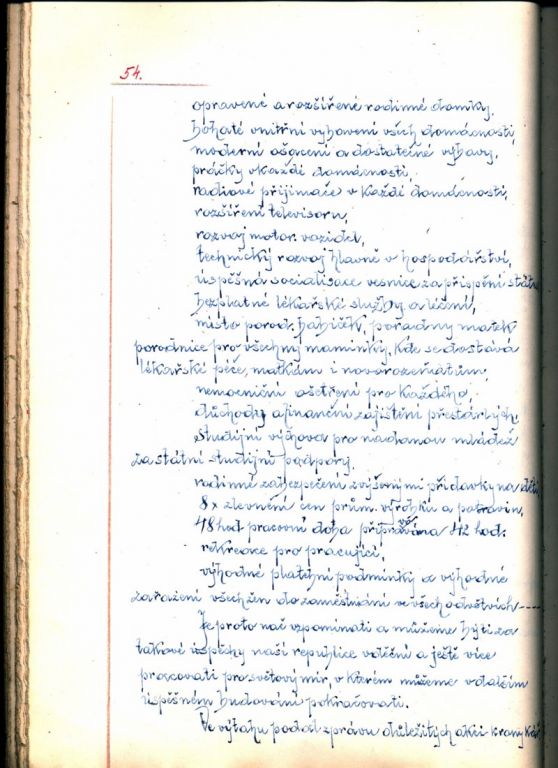 54.
opravené a rozšířené rodinné domky,
bohaté vnitřní vybavení všech domácností,
moderní ošacení a dostatečné výbavy,
práčky v každé domácnosti,
radiové přijimače v každé domácnosti,
rozšíření televisoru,
rozvoj motor. vozidel,
technický rozvoj hlavně v hospodářství,
úspěšná socialisace vesnice za přispění státu
bezplatné lékařské služby a léčení,
místo porod. babiček, poradny matek
porodnice pro všechny maminky, kde se dostává
lékařské péče, matkám i novorozeňatům,
nemocniční ošetření pro každého,
důchody a finanční zajištění přestárlých,
studijní výchova pro nadanou mládež
za státní studijní podpory,
rodinné zabezpečení zvýšenými přídavky na děti
8x zlevnění cen prům. výrobků a potravin,
48 hod pracovní doba připravována 42 hod.
rekreace pro pracující,
výhodné platební podmínky a výhodné
zařazení všech žen do zaměstnání ve všech odvětvích ----
Je proto nač vzpomínati a můžeme býti za
takové úspěchy naší republice vděčni a ještě více
pracovati pro světový mír, v kterém můžeme v dalším
úspěšném budování pokračovati.
Ve výtahu podal zprávu důležitých akcí